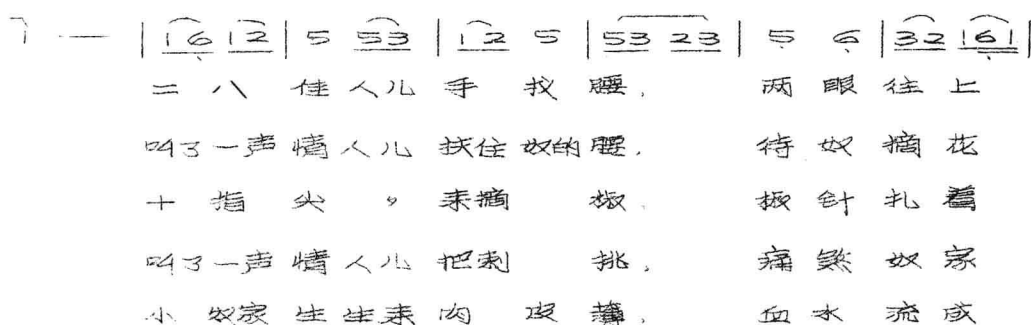 1 — | 16 12 | 5 53 | 12 5 | 53 23 | 5 6 | 32 161 |
二八佳人儿手扠腰, 两眼往上
叫了一声情人儿扶住奴的腰, 待奴摘花
十指尖〃来摘椒, 椒针扎着
叫了一声情人儿把刺挑, 痛煞奴家
小奴家生生来肉皮薄, 血水流成